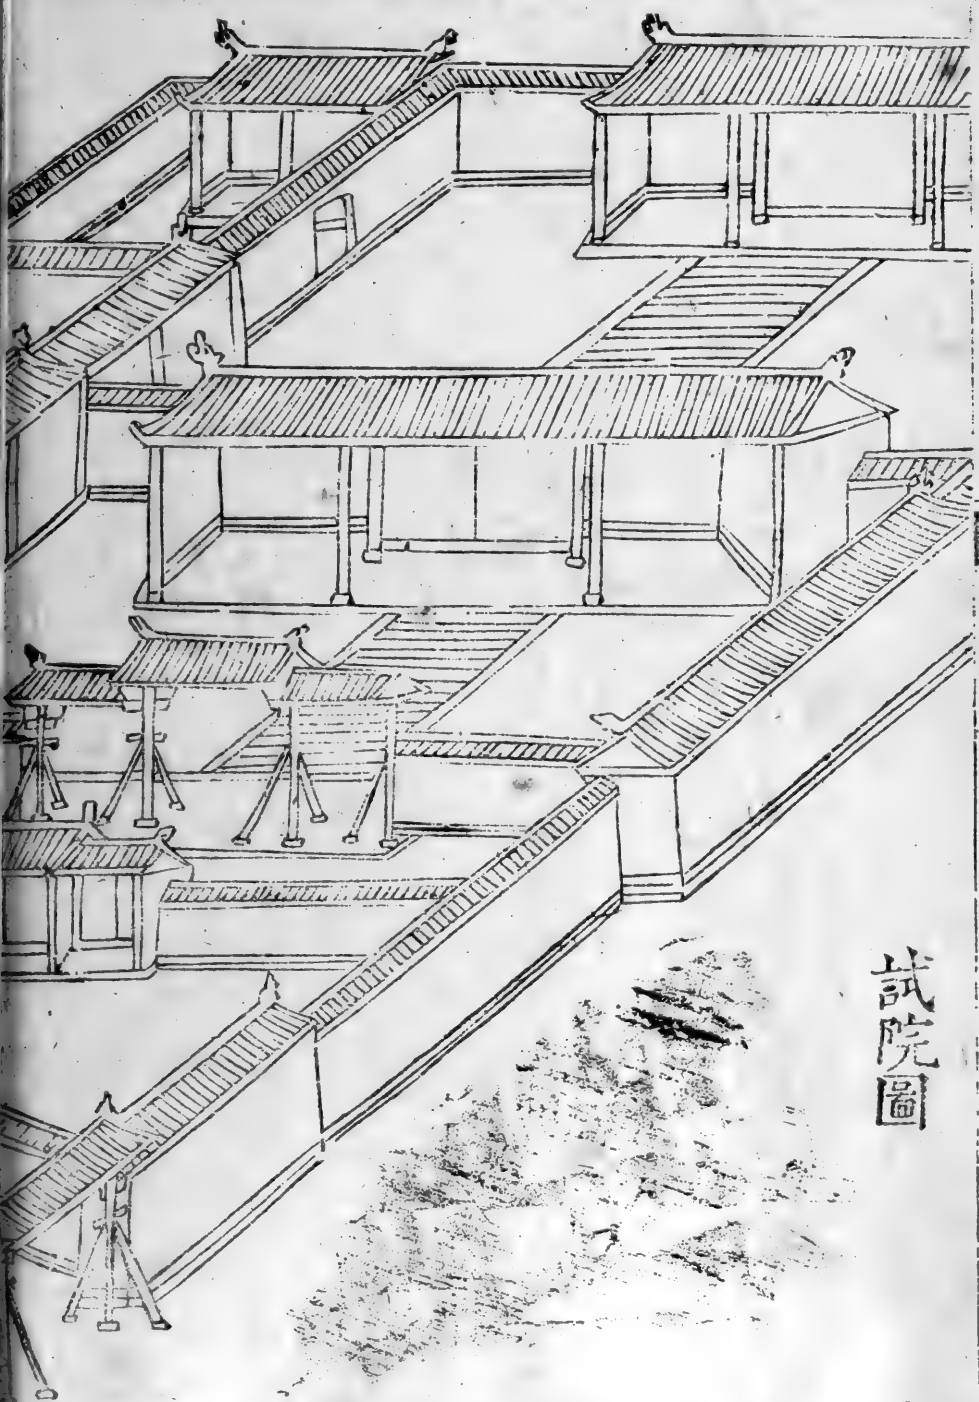 試院圖